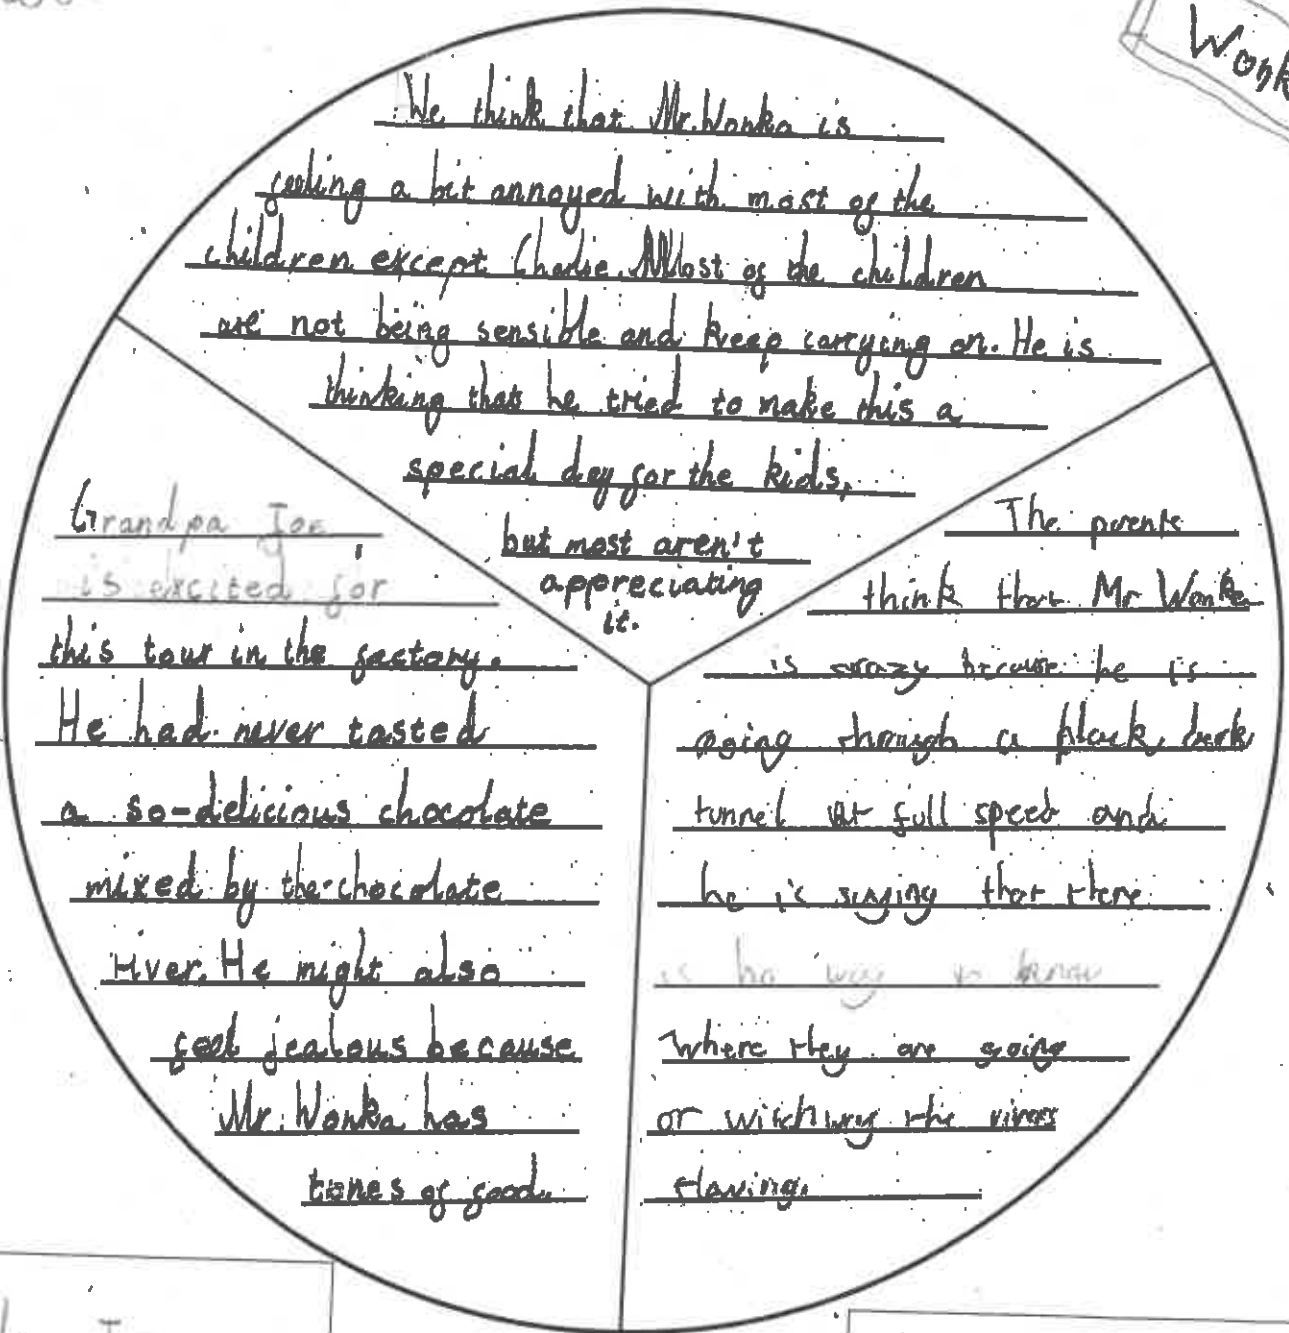 Wonk
We think that Mr. Wonka is
feeling a bit annoyed with most of the
children except Charlie. Most of the children
are not being sensible and keep carrying on. He is
thinking that he tried to make this a
special day for the kids,
but most aren't
appreciating
it.
Grandpa Joe
is excited for
this tour in the factory.
He had never tasted
a so-delicious chocolate
mixed by the chocolate
river. He might also
feel jealous because
Mr. Wonka has
tones of food.
The parents
think that Mr Wonka
is crazy because he is
going through a black, dark
tunnel at full speed and
he is saying that there
is no way to know
where they are going
or witch way the rivers
flowing.